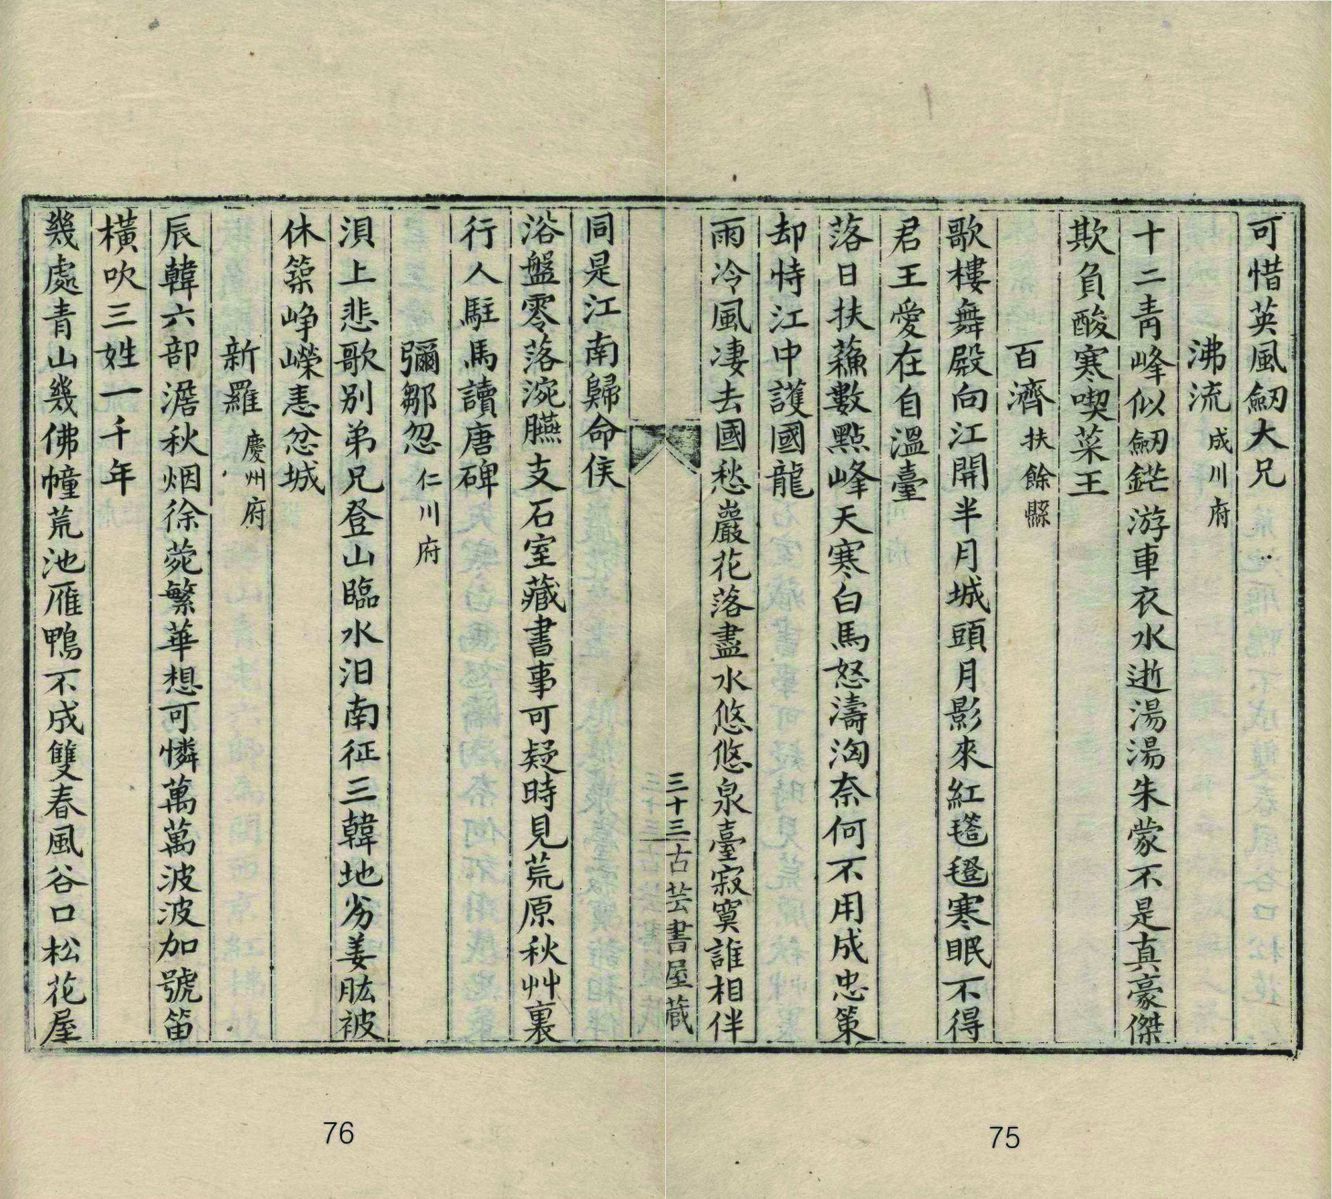 可惜英風劒大兄
沸流 成川府
十二靑峰似劒鋩游車衣水逝湯湯朱蒙不是真豪傑
欺負酸寒喫菜王
百濟 扶餘縣
歌樓舞殿向江開半月城頭月影來紅㲪毾寒眠不得
君王愛在自溫臺
落日扶蘓數點峰天寒白馬怒濤洶奈何不用成忠策
却恃江中護國龍
雨冷風凄去國愁巖花落盡水悠悠泉臺寂寞誰相伴
三十三 古芸書屋蔵
同是江南歸命侯
浴盤零落涴臙支石室藏書事可疑時見荒原秋艸裏
行人駐馬讀唐碑
彌鄒忽 仁川府
浿上悲歌別弟兄登山臨水汨南征三韓地劣姜肱被
休築崢嶸恚忿城
新羅 慶州府
辰韓六部澹秋烟徐菀繁華想可憐萬萬波波加號笛
橫吹三姓一千年
幾處靑山幾佛幢荒池雁鴨不成雙春風谷口松花屋
76
75